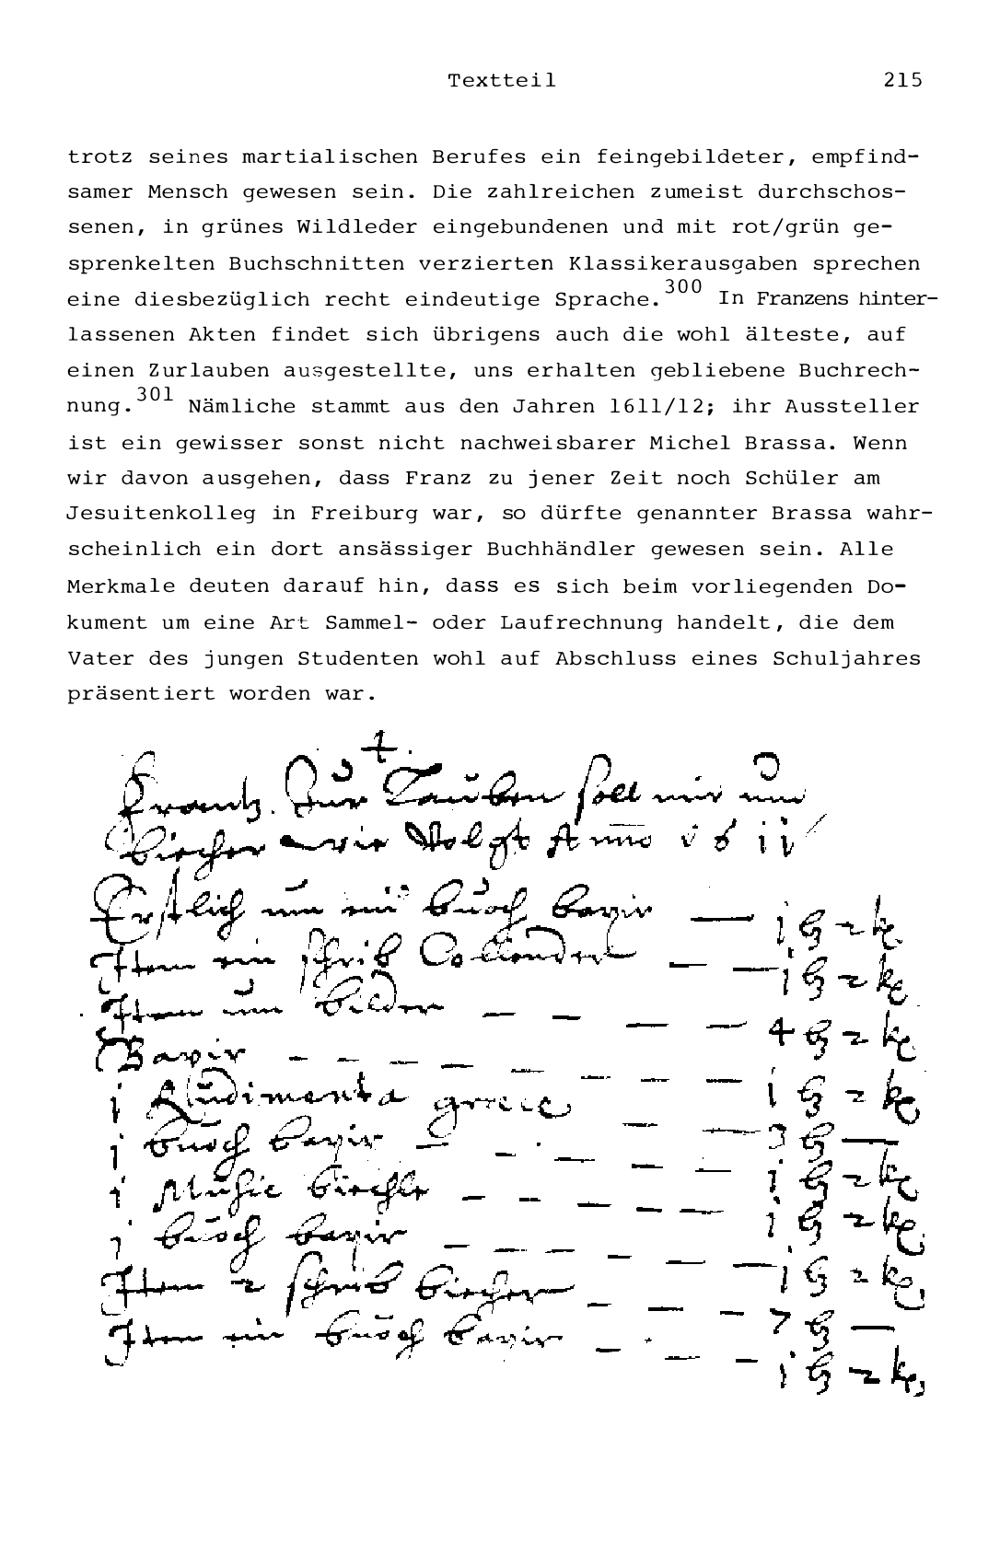 Textteil 215
trotz seines martialischen Berufes ein feingebildeter, empfind-
samer Mensch gewesen sein. Die zahlreichen zumeist durchschos-
senen, in grünes Wildleder eingebundenen und mit rot/grün ge-
sprenkelten Buchschnitten verzierten Klassikerausgaben sprechen
eine diesbezüglich recht eindeutige Sprache.300 In Franzens hinter-
lassenen Akten findet sich übrigens auch die wohl älteste, auf
einen Zurlauben ausgestellte, uns erhalten gebliebene Buchrech-
nung.301 Nämliche stammt aus den Jahren 1611/12; ihr Aussteller
ist ein gewisser sonst nicht nachweisbarer Michel Brassa. Wenn
wir davon ausgehen, dass Franz zu jener Zeit noch Schüler am
Jesuitenkolleg in Freiburg war, so dürfte genannter Brassa wahr-
scheinlich ein dort ansässiger Buchhändler gewesen sein. Alle
Merkmale deuten darauf hin, dass es sich beim vorliegenden Do-
kument um eine Art Sammel- oder Laufrechnung handelt, die dem
Vater des jungen Studenten wohl auf Abschluss eines Schuljahres
präsentiert worden war.
Frantz Zur Lauben soll mir um
biecher wie Volgt Anno 1611
Erstlich um ein buoch bapir — 1 b 2 k
Item ein schrib Collender — — 1 b 2 k
Item um bilder — — — — 4 b 2 k
Bapir — — — — — — — — 1 b 2 k
1 Rudimenta grece — — 3 b —
1 buoch bapir — — — — — 1 b 2 k
1 Music biechle — — — — — — 1 b 2 k
1 buoch bapir — — — — — — 1 b 2 k
Item 2 schrib biecher — — — 7 b —
Item ein buoch bapir — — — 1 b 2 k